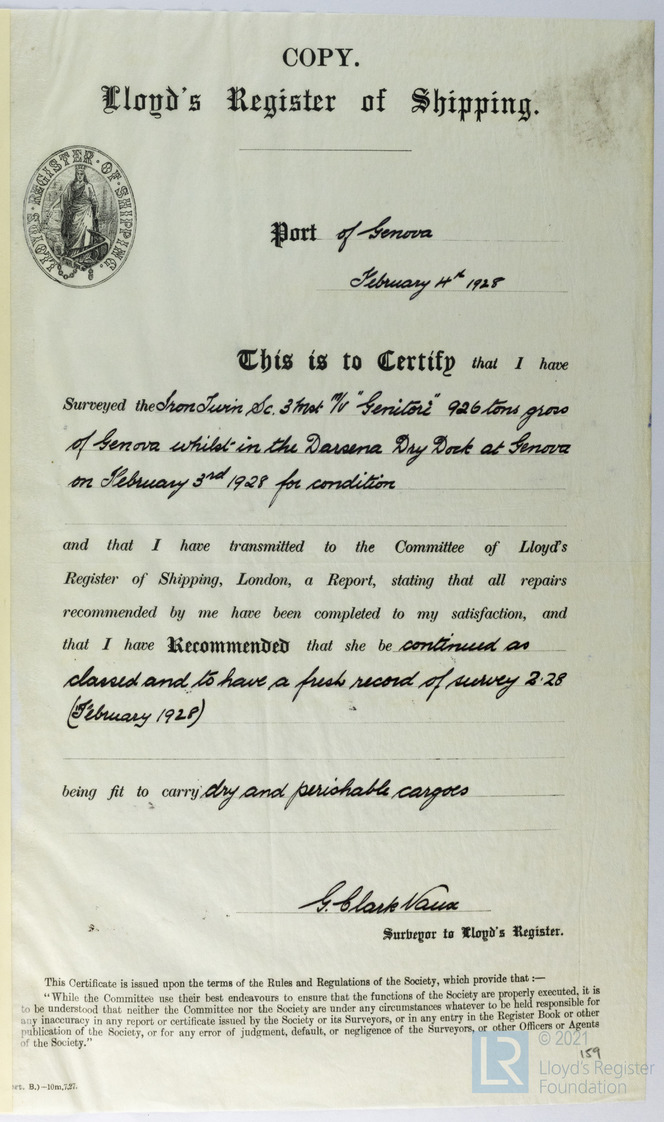 COPY.
Lloyd's Register of Shipping.
LLOYDS·REGISTER·OF·SHIPPING.
Port of Genova
February 4th 1928
This is to Certify that I have
Surveyed the Iron Twin Sc. 3 Mst M/V "Genitori" 926 tons gross
of Genova whilst in the Darsena Dry Dock at Genova
on February 3rd 1928 for condition
and that I have transmitted to the Committee of Lloyd's
Register of Shipping, London, a Report, stating that all repairs
recommended by me have been completed to my satisfaction, and
that I have Recommended that she be continued as
classed and to have a fresh record of survey 2·28
(February 1928)
being fit to carry dry and perishable cargoes
G. Clark Vaux
Surveyor to Lloyd's Register.
This Certificate is issued upon the terms of the Rules and Regulations of the Society, which provide that :—
"While the Committee use their best endeavours to ensure that the functions of the Society are properly executed, it is
to be understood that neither the Committee nor the Society are under any circumstances whatever to be held responsible for
any inaccuracy in any report or certificate issued by the Society or its Surveyors, or in any entry in the Register Book or other
publication of the Society, or for any error of judgment, default, or negligence of the Surveyors, or other Officers or Agents
of the Society."
159
B.)—10m,7,27.
© 2021
LR Lloyd's Register
Foundation